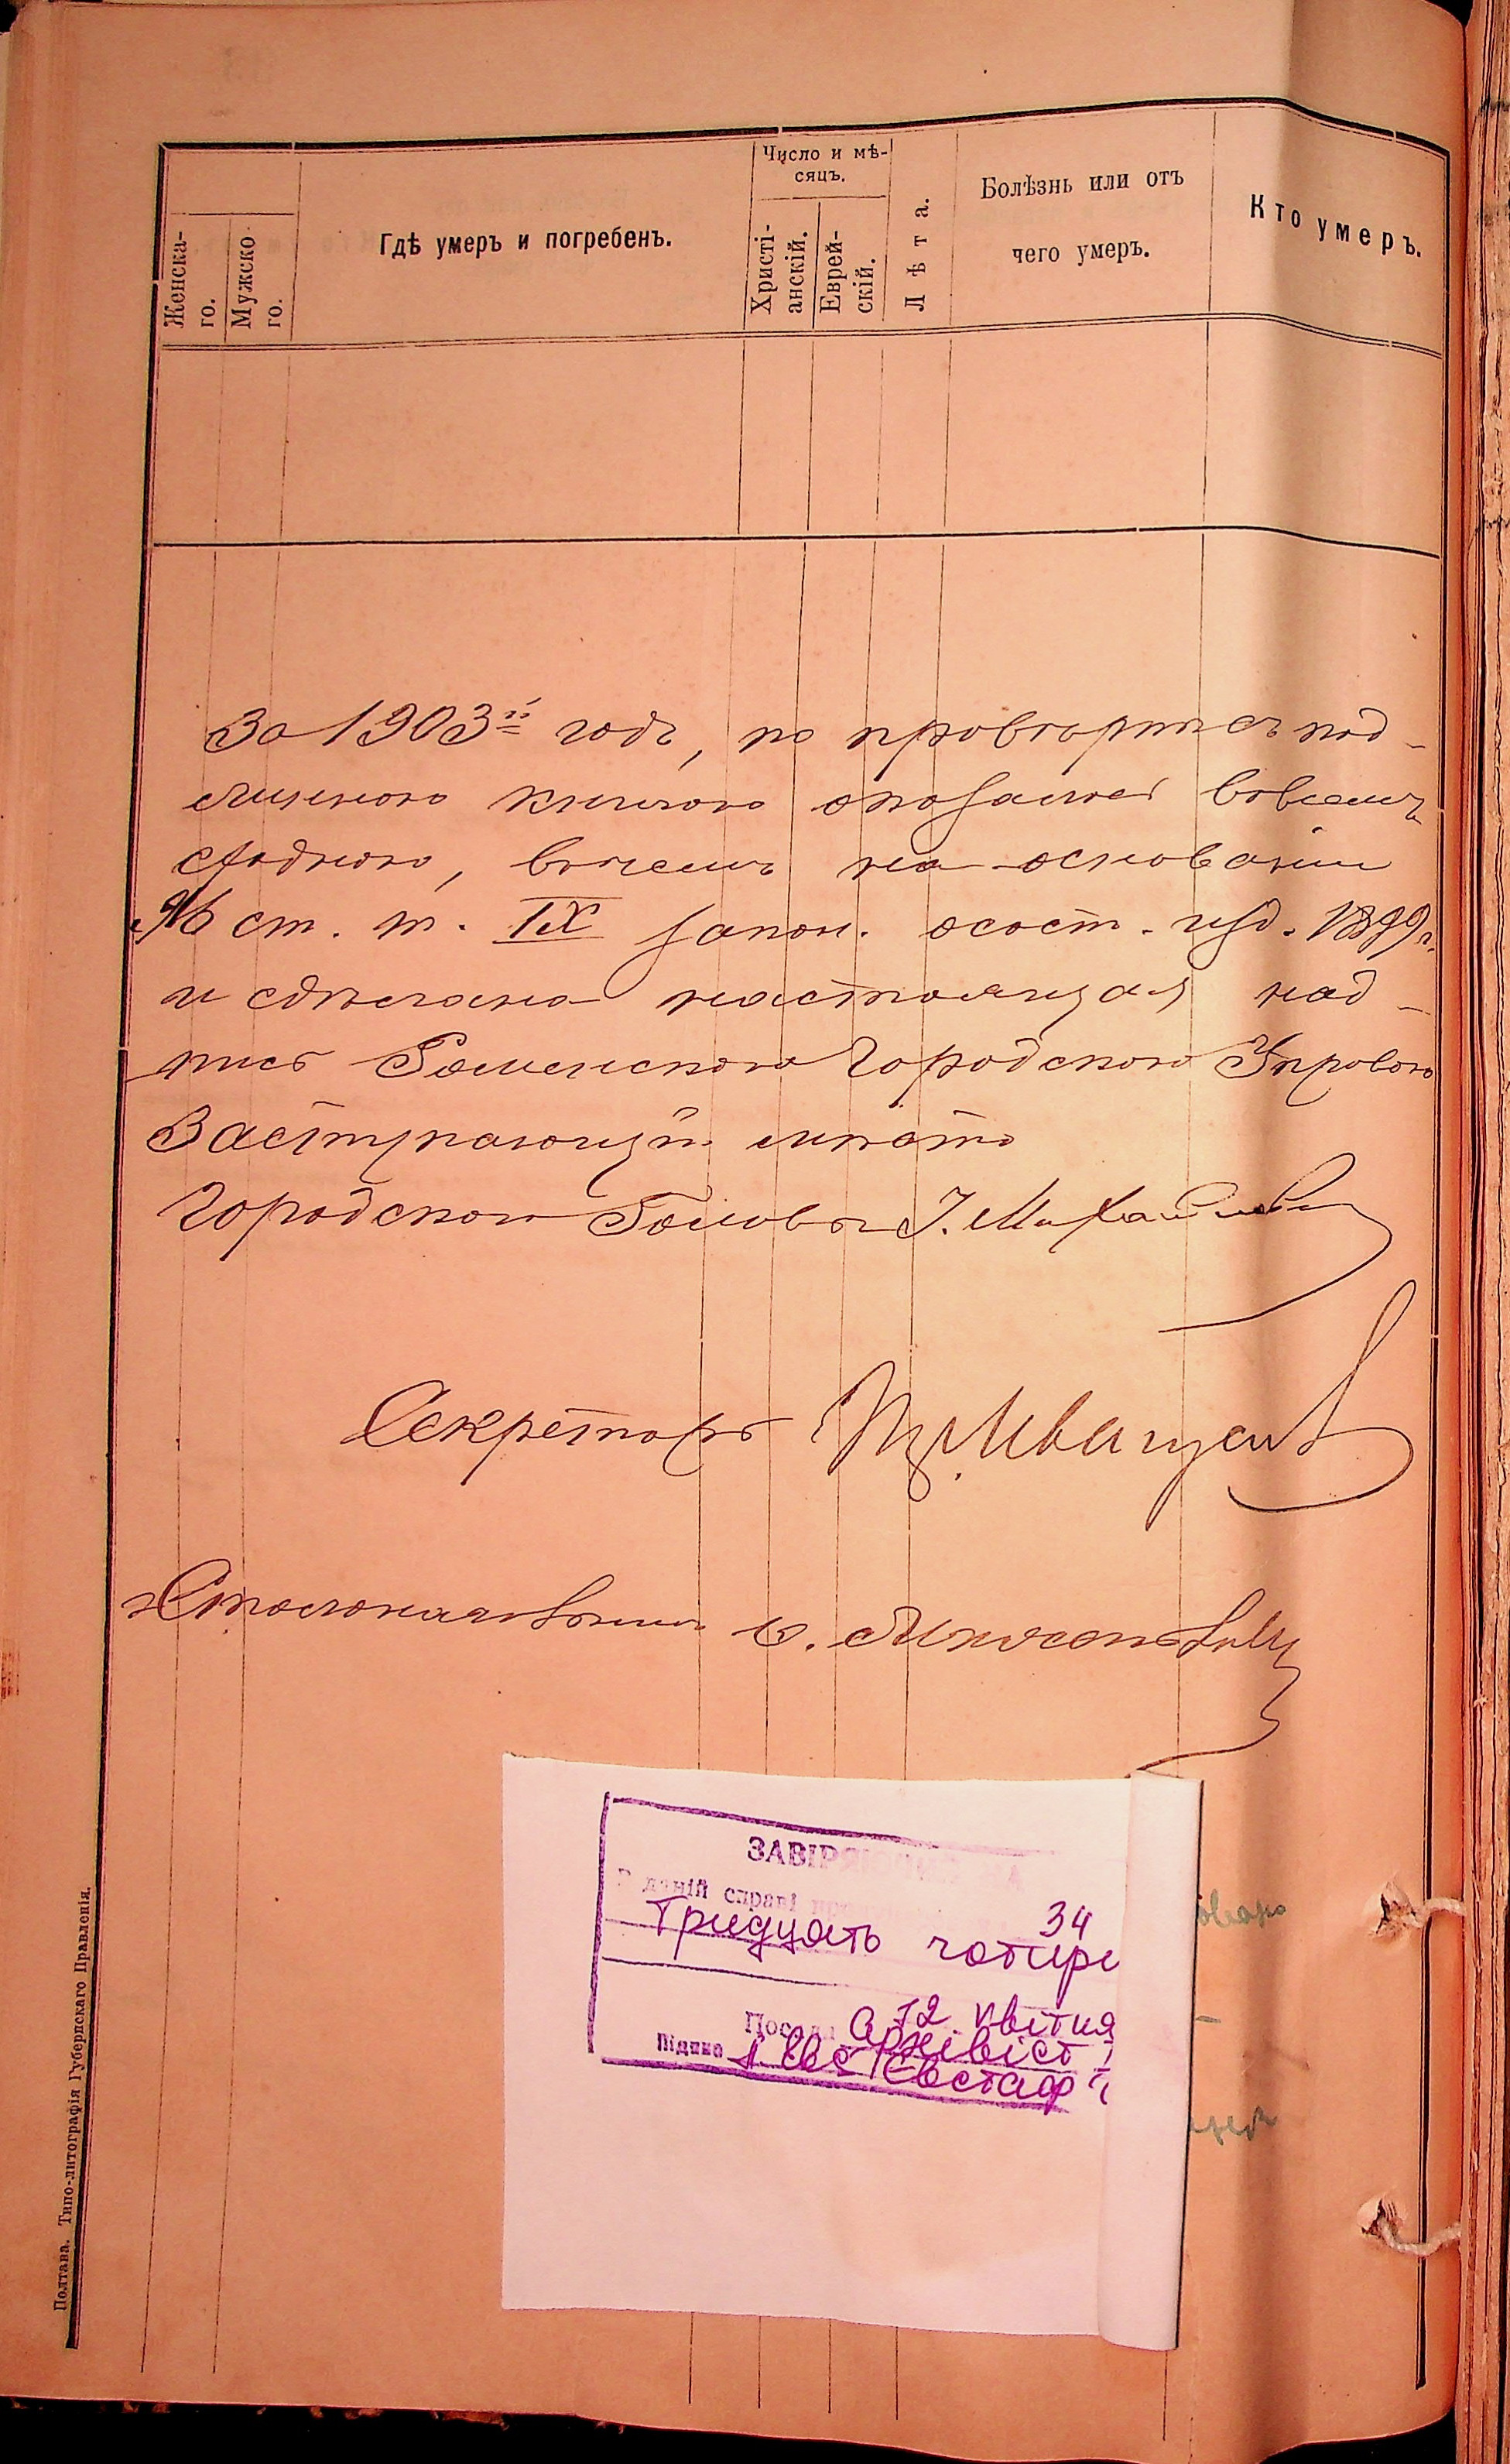 Женска-
го.
Мужско-
го.
Гдѣ умеръ и погребенъ.
Число и мѣ-
сяцъ.
Христі-
анскій.
Еврей-
скій.
Лѣта.
Болѣзнь или отъ
чего умеръ.
Кто умеръ.
За 1903й годъ, по провѣркѣ съ под-
линною книгою оказалась вовсемъ
сходною, въ чемъ на основаніи
ст. т. IX закон. о сост. изд. 1899 г.
и сдѣлана настоящая над-
пись Роменскою Городскою Управою
Заступающій мѣсто
Городского Головы І. Михайлов
Секретарь
Столоначальникъ
ЗАВІР
В даній справі
Тридцять чотири 34
12 квітня
Посада архівіст
Підпис Євстаф
Полтава. Типо-литографія Губернскаго Правленія.